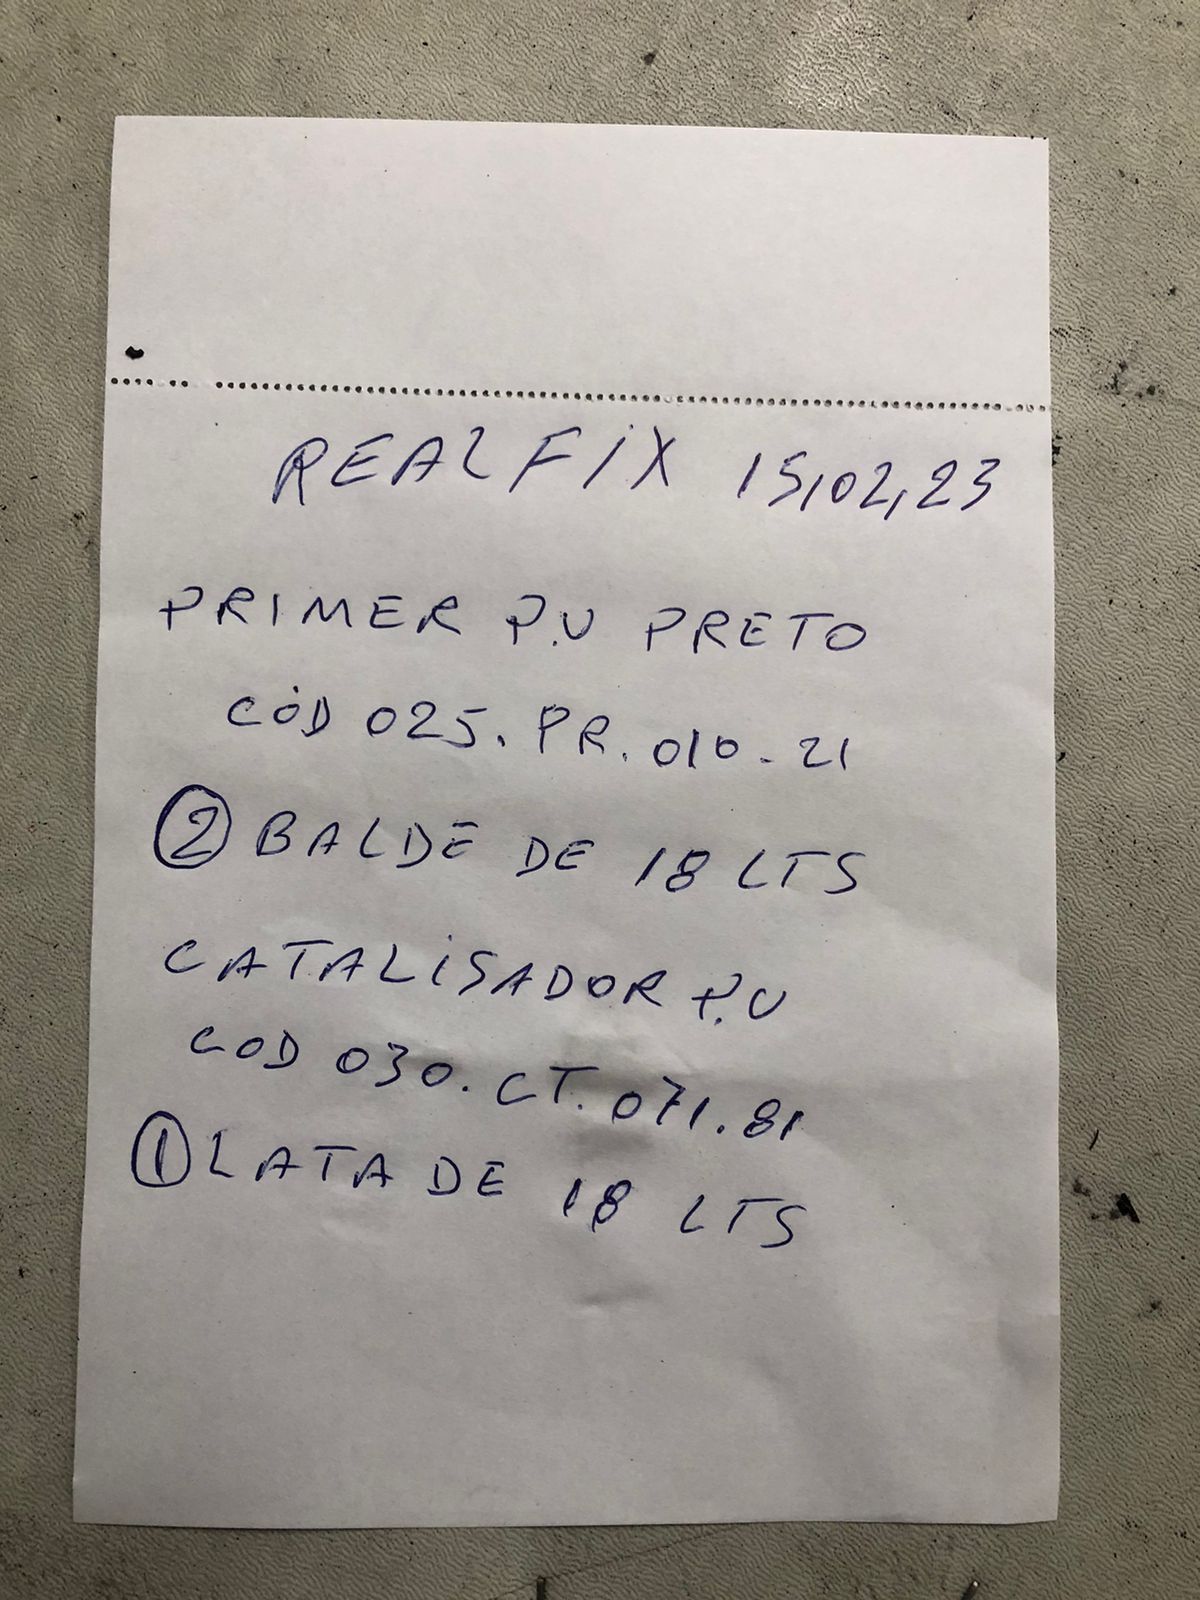 REALFIX 15,02,23
PRIMER P.U PRETO
CÓD 025.PR.010-21
2 BALDE DE 18 LTS
CATALISADOR P.U
COD 030.CT.071.81
1 LATA DE 18 LTS